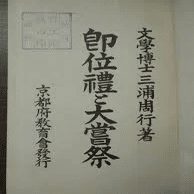 文學博士三浦周行著
即位禮と大嘗祭
京都府敎育會發行